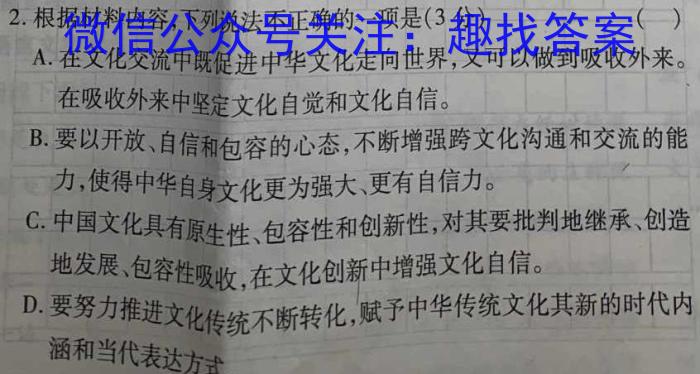 2. 根据材料内容,下列说法不正确的一项是(3分) ( )
微信公众号关注：趣找答案
A. 在文化交流中既促进中华文化走向世界,又可以做到吸收外来。
在吸收外来中坚定文化自觉和文化自信。
B. 要以开放、自信和包容的心态,不断增强跨文化沟通和交流的能
力,使得中华自身文化更为强大、更有自信力。
C. 中国文化具有原生性、包容性和创新性,对其要批判地继承、创造
地发展、包容性吸收,在文化创新中增强文化自信。
D. 要努力推进文化传统不断转化,赋予中华传统文化其新的时代内
涵和当代表达方式